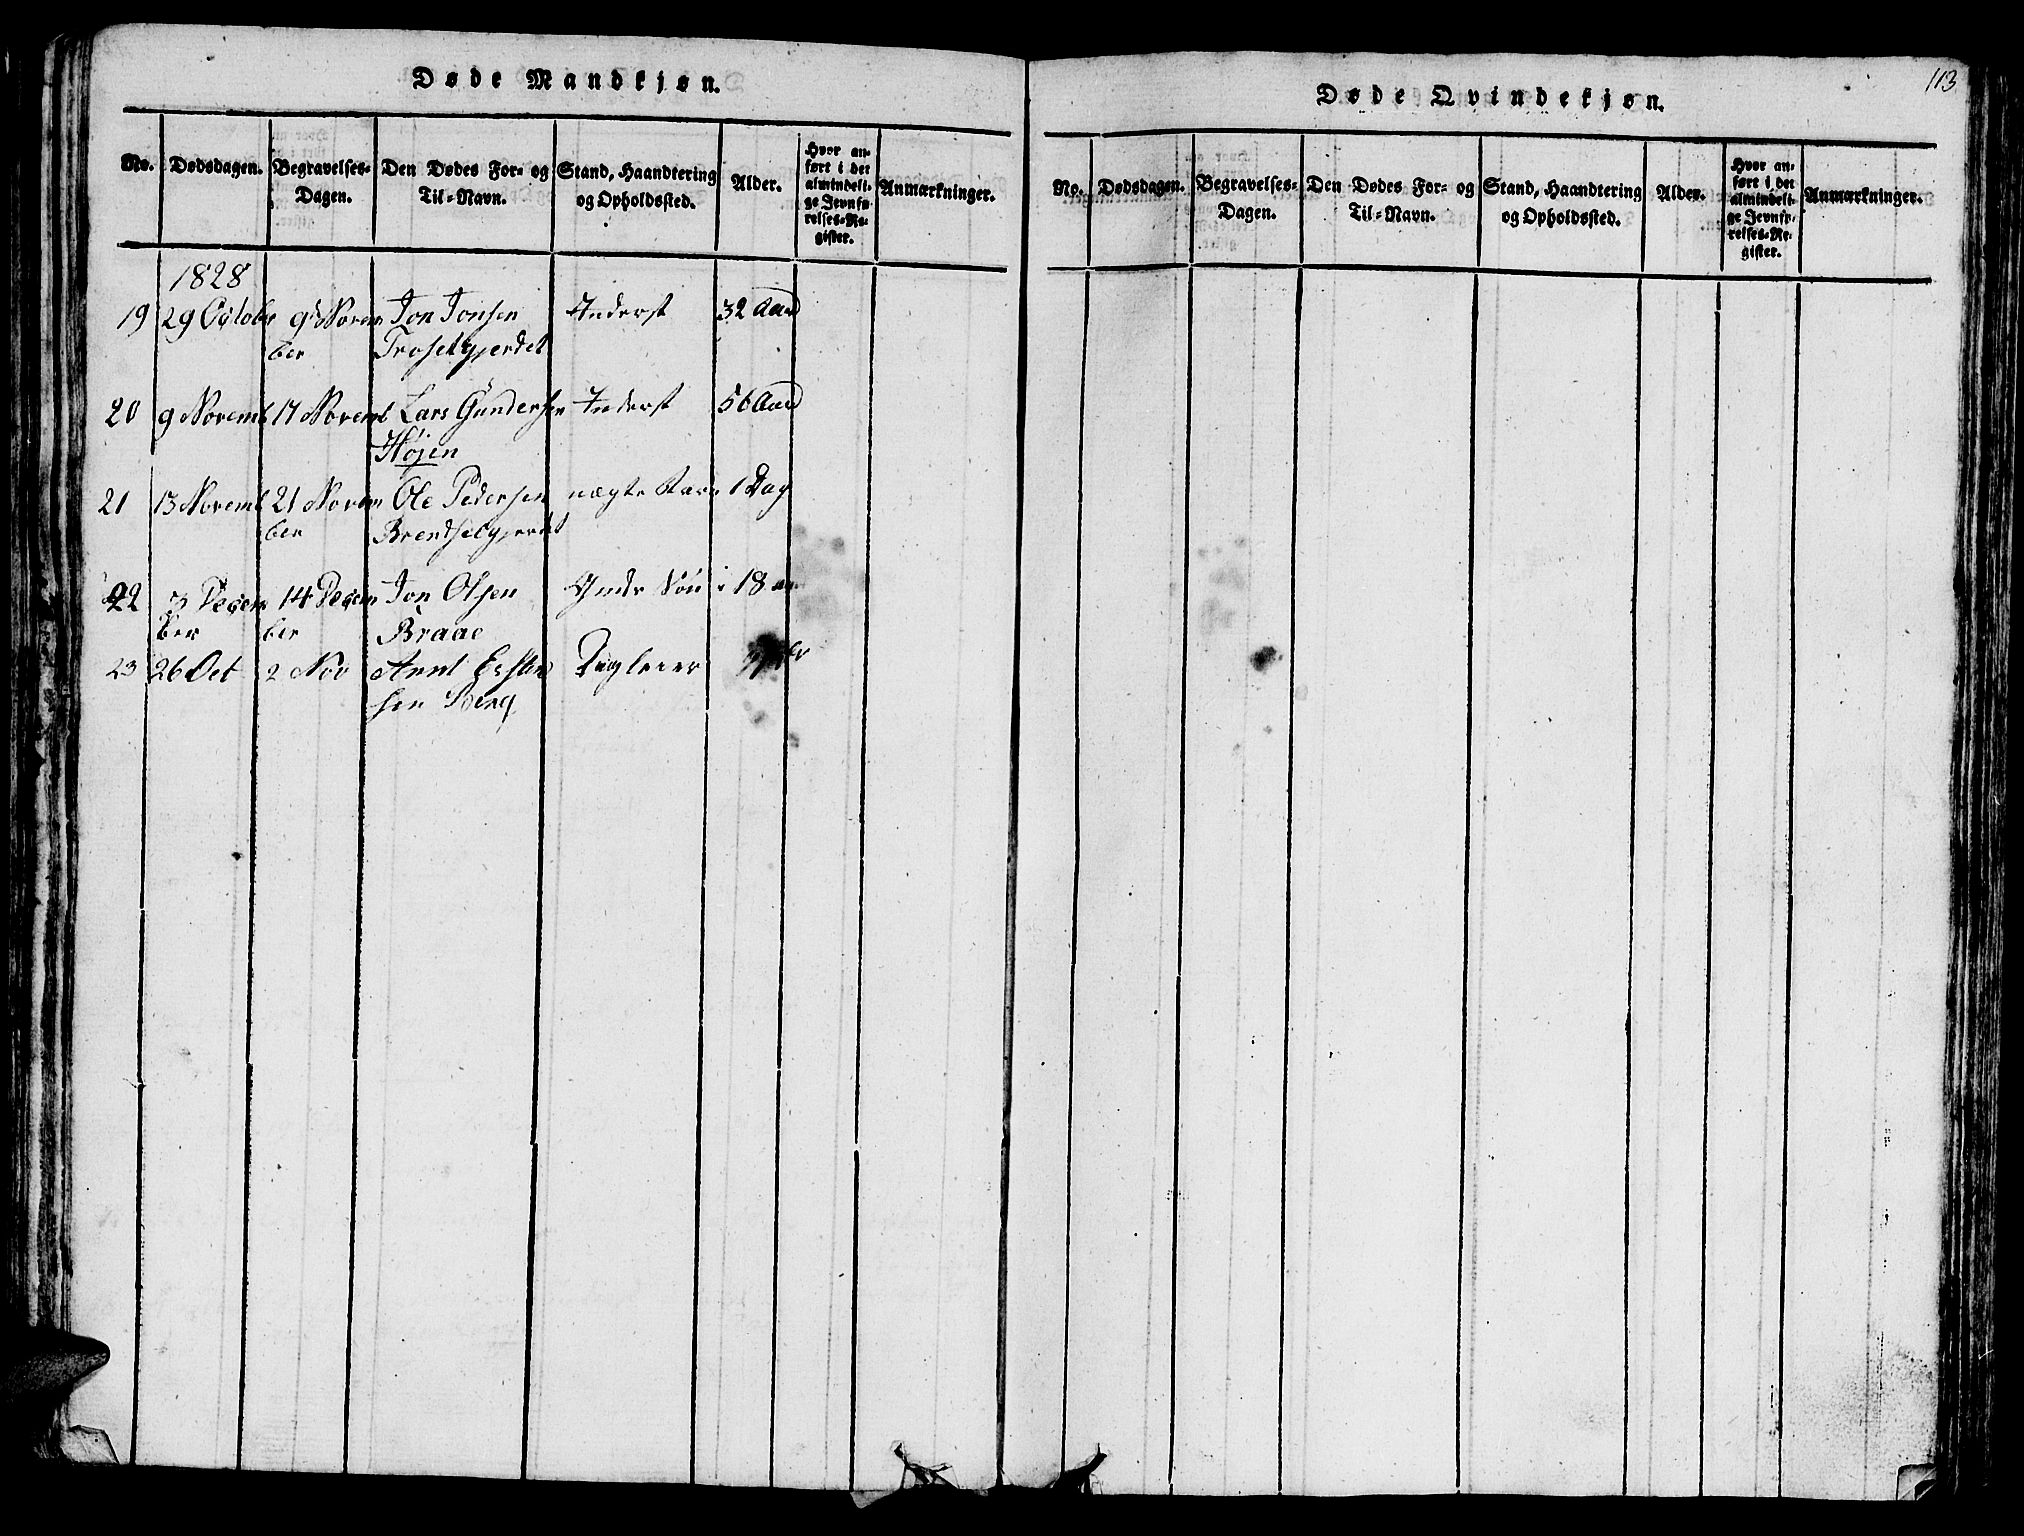 Døde Mandkjøn.
No. Dødsdagen. Begravelses-Dagen. Den Dødes For- og Til-Navn. Stand, Haandtering og Opholdssted. Alder. Hvor anført i det almindelige Jevnførelses-Register. Anmærkninger.
1828
19 29 October 9 Novem Jon Jonsen Inderst 32 Aar
ber Troselgjerdet
20 9 Novemb 17 Novemb Lars Gundersen Inderst 56 Aar
Højen
21 13 Novemb 21 Novem Ole Pedersen uægte Barn 1 Dag
ber Brendselgjerdet
22 3 Decem 14 Decem Jon Olsen 18 aar
ber ber Braae
23 26 Oct 2 Nov Arnt Esten
sen Berg
Døde Qvindekjøn.
113
No. Dødsdagen. Begravelses-Dagen. Den Dødes For- og Til-Navn. Stand, Haandtering og Opholdssted. Alder. Hvor anført i det almindelige Jevnførelses-Register. Anmærkninger.